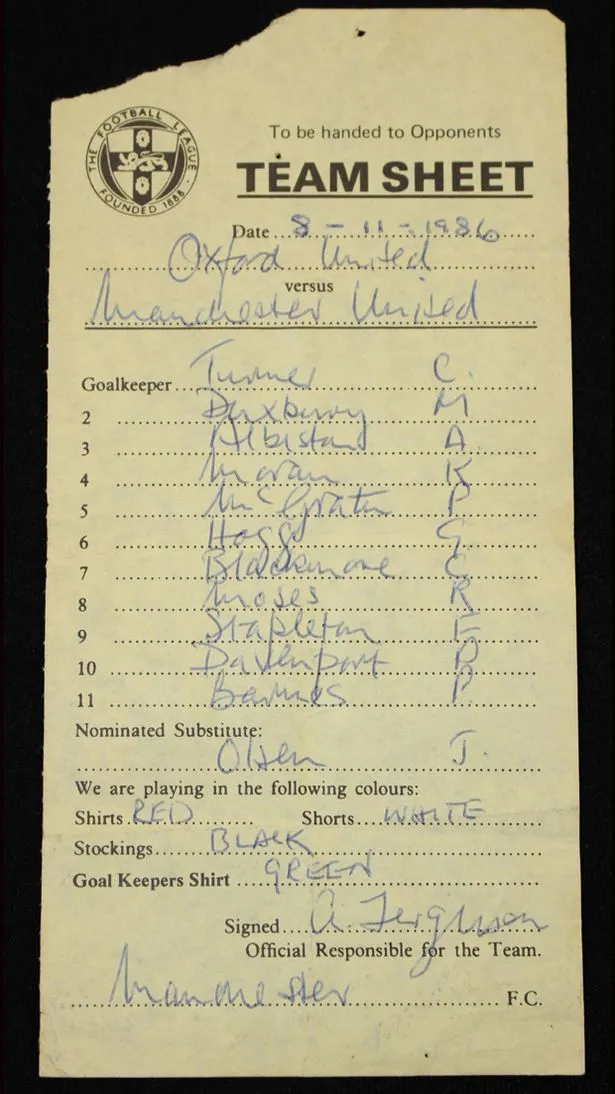 THE FOOTBALL LEAGUE
FOUNDED 1888
To be handed to Opponents
TEAM SHEET
Date 8 - 11 - 1986
Oxford United
versus
Manchester United
Goalkeeper Turner C.
2 Duxbury M
3 Albiston A
4 Moran K
5 McGrath P
6 Hogg G
7 Blackmore C
8 Moses R
9 Stapleton F
10 Davenport P
11 Barnes P.
Nominated Substitute:
Olsen J.
We are playing in the following colours:
Shirts RED Shorts WHITE
Stockings BLACK
Goal Keepers Shirt GREEN
Signed A. Ferguson
Official Responsible for the Team.
Manchester F.C.